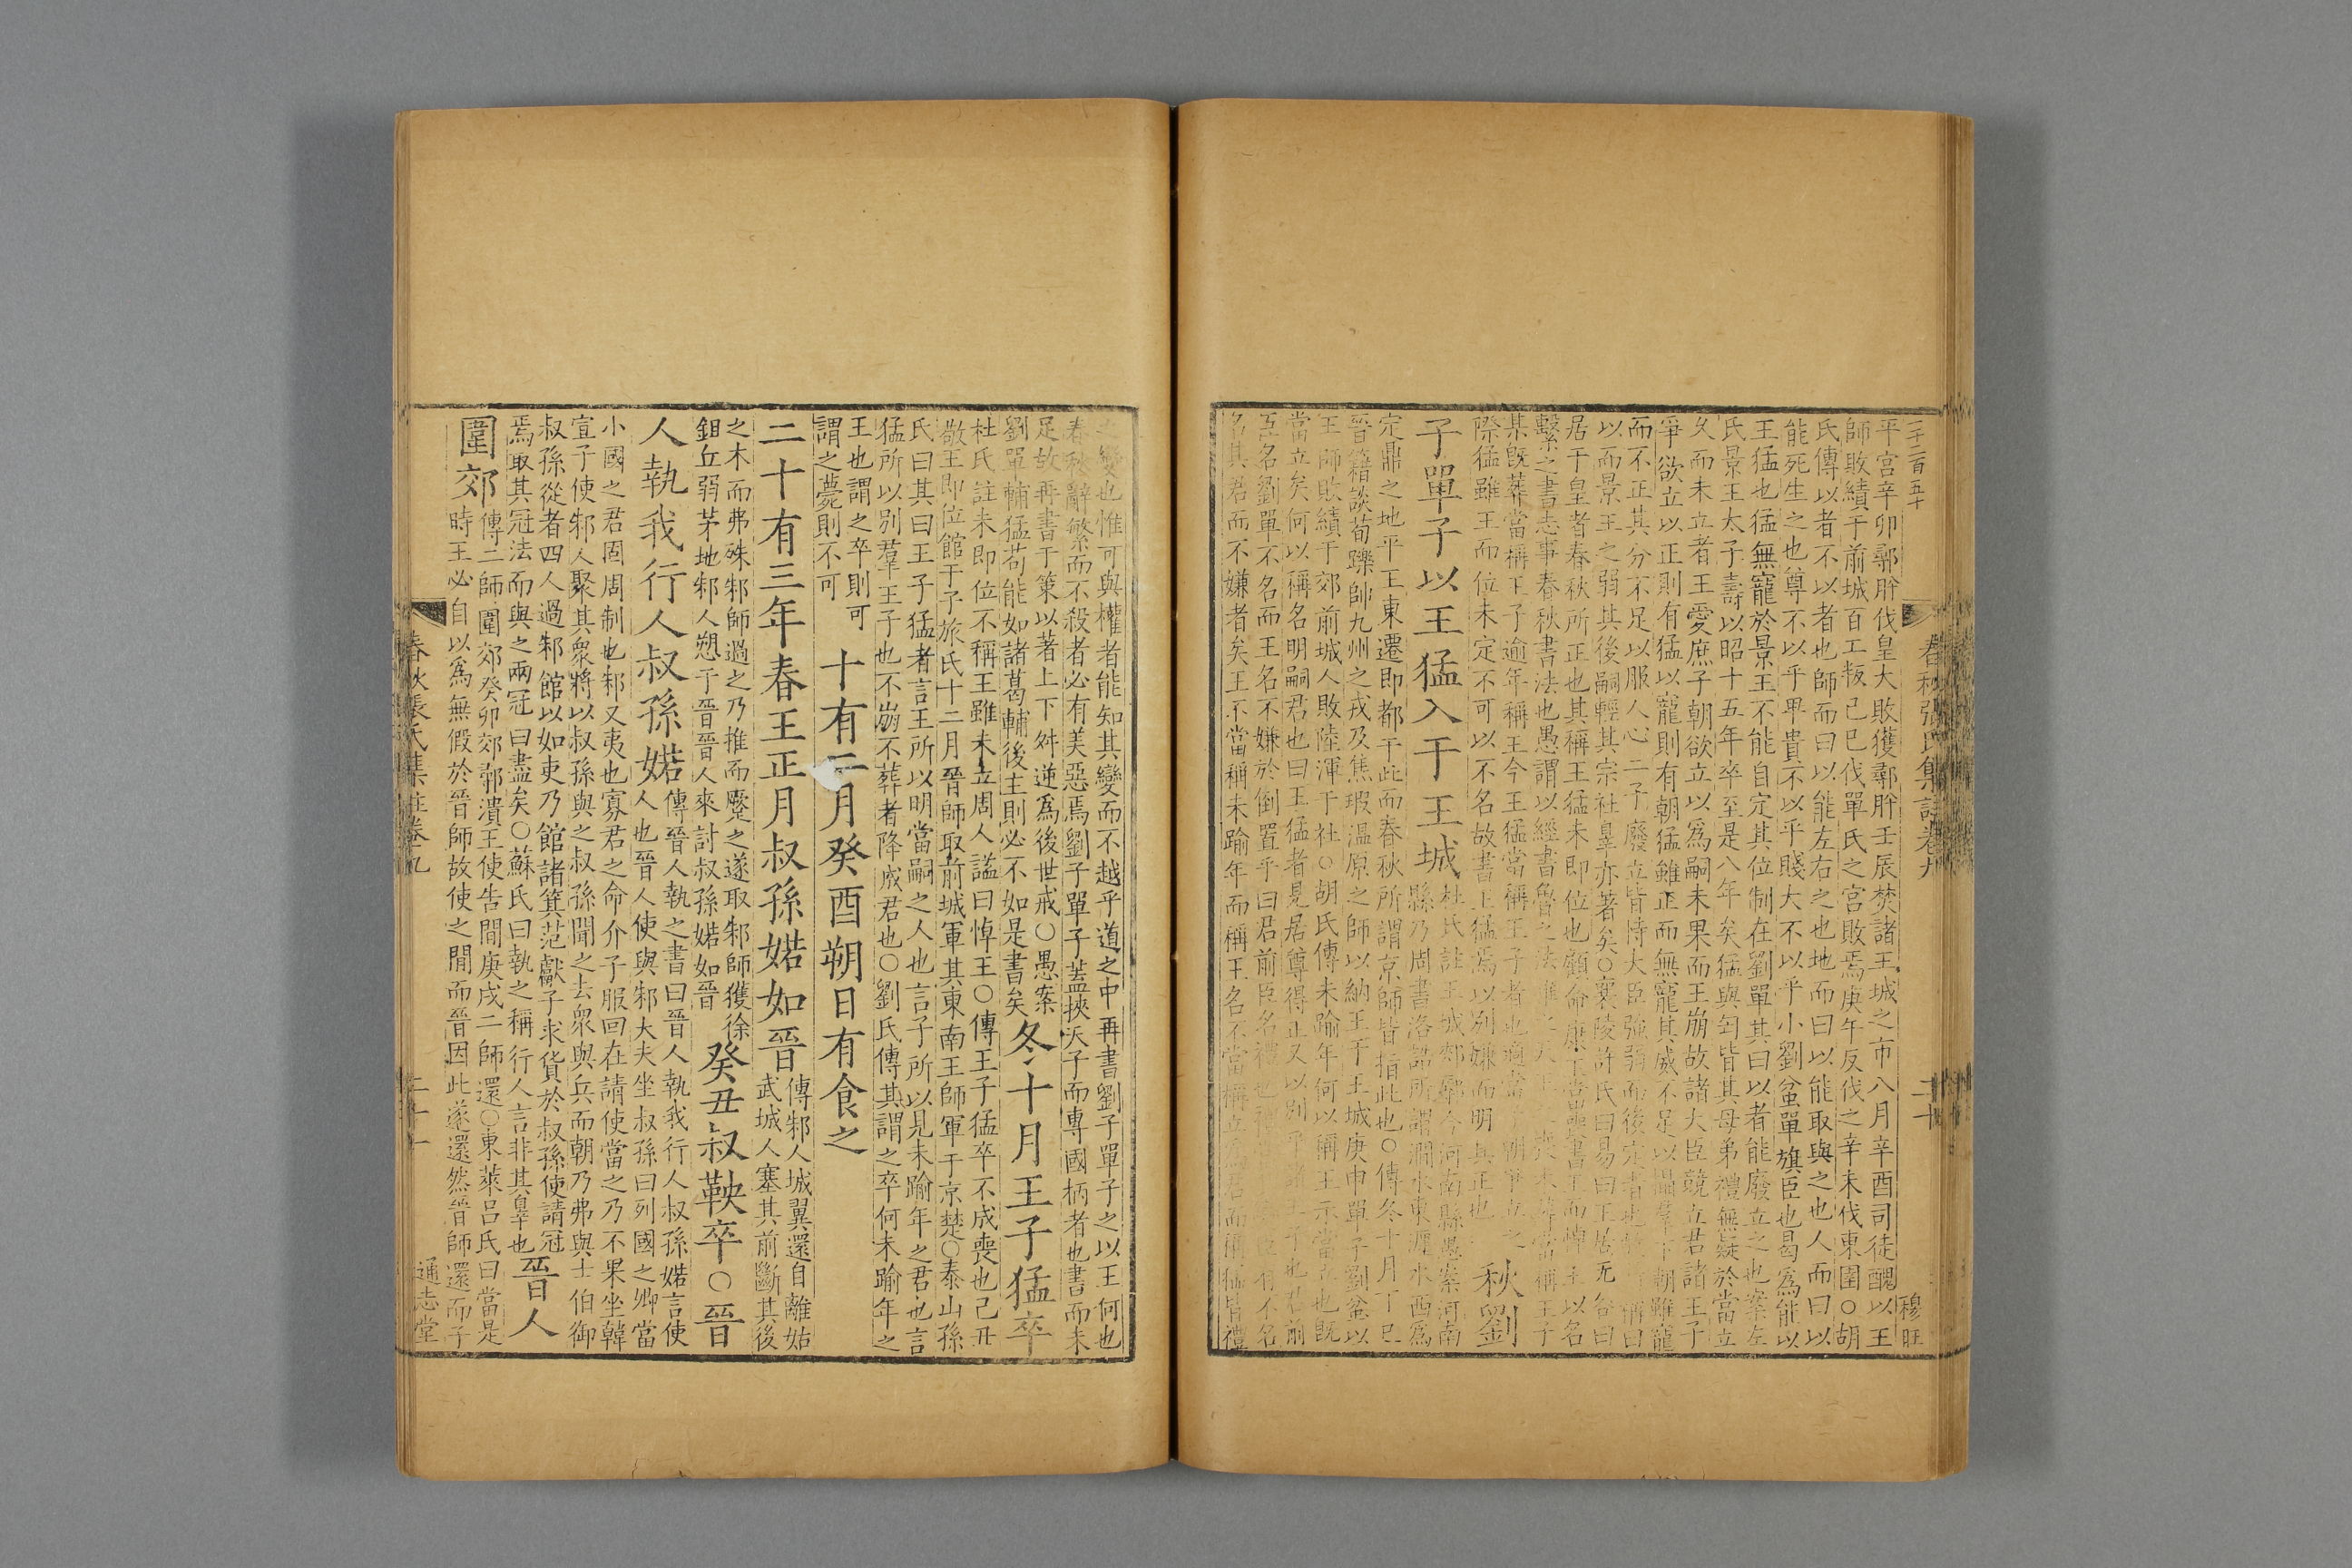 二千二百五十
春秋張氏集註卷九
二十
穆旺
平宮辛卯鄩肸伐皇大敗獲鄩肸壬辰焚諸王城之市八月辛酉司徒醜以王
師敗績于前城百工叛己巳伐單氏之宮敗焉庚午反伐之辛未伐東圉○胡
氏傳以者不以者也師而曰以能左右之也地而曰以能取與之也人而曰以
能死生之也尊不以乎卑貴不以乎賤大不以乎小劉蚠單旗臣也曷爲能以
王猛也猛無寵於景王不能自定其位制在劉單其曰以者能廢立之也案左
氏景王太子壽以昭十五年卒至是八年矣猛與匄皆其母弟禮無疑於當立
久而未立者王愛庶子朝欲立以爲嗣未果而王崩故諸大臣競立君諸王子
爭欲立以正則有猛以寵則有朝猛雖正而無寵其威不足以懾羣下朝雖寵
而不正其分不足以服人心二子廢立皆恃大臣強弱而後定者也 稱曰
以而景王之弱其後嗣輕其宗社辠亦著矣○襄陵許氏曰易曰王居无咎曰
居于皇者春秋所正也其稱王猛未即位也顧命康王當喪書王而悼王以名
繫之書志事春秋書法也愚謂以經書魯之法推之天王喪未葬當稱王子
某既葬當稱王子逾年稱王今王猛當稱王子者也適當 朝爭立之
際猛雖王而位未定不可以不名故書王猛焉以別嫌而明其正也 秋劉
子單子以王猛入于王城
杜氏註王城郟鄏今河南縣愚案河南
縣乃周書洛誥所謂澗水東瀍水西爲
定鼎之地平王東遷即都于此而春秋所謂京師皆指此也○傳冬十月丁巳
晉籍談荀躒帥九州之戎及焦瑕温原之師以納王于王城庚申單子劉蚠以
王師敗績于郊前城人敗陸渾于社○胡氏傳未踰年何以稱王示當立也既
當立矣何以稱名明嗣君也曰王猛者見居尊得正又以別乎諸王子也君前
臣名劉單不名而王名不嫌於倒置乎曰君前臣名禮也 有不名
名其君而不嫌者矣王不當稱未踰年而稱王名不當稱立 君而稱猛皆禮
之變也惟可與權者能知其變而不越乎道之中再書劉子單子之以王何也
春秋辭繁而不殺者必有美惡焉劉子單子蓋挾天子而專國柄者也書而未
足故再書于策以著上下舛逆爲後世戒○愚案
劉單輔猛苟能如諸葛輔後主則必不如是書矣
冬十月王子猛卒
杜氏註未即位不稱王雖未立周人謚曰悼王○傳王子猛卒不成喪也己丑
敬王即位館于子旅氏十二月晉師取前城軍其東南王師軍于京楚○泰山孫
氏曰其曰王子猛者言王所以明當嗣之人也言子所以見未踰年之君也言
猛所以別羣王子也不崩不葬者降成君也○劉氏傳其謂之卒何未踰年之
王也謂之卒則可
謂之薨則不可
十有二月癸酉朔日有食之
二十有三年春王正月叔孫婼如晉
傳邾人城翼還自離姑
武城人塞其前斷其後
之木而弗殊邾師過之乃推而蹷之遂取邾師獲徐
鉏丘弱茅地邾人愬于晉晉人來討叔孫婼如晉
癸丑叔鞅卒○晉
人執我行人叔孫婼
傳晉人執之書曰晉人執我行人叔孫婼言使
人也晉人使與邾大夫坐叔孫曰列國之卿當
小國之君固周制也邾又夷也寡君之命介子服回在請使當之乃不果坐韓
宣子使邾人聚其衆將以叔孫與之叔孫聞之去衆與兵而朝乃弗與士伯御
叔孫從者四人過邾館以如吏乃館諸箕范獻子求貨於叔孫使請冠
焉取其冠法而與之兩冠曰盡矣○蘇氏曰執之稱行人言非其辠也
晉人
圍郊
傳二師圍郊癸卯郊鄩潰王使告間庚戌二師還○東萊呂氏曰當是
時王必自以爲無假於晉師故使之間而晉因此遂還然晉師還而子
春秋張氏集註卷九
二十一
通志堂